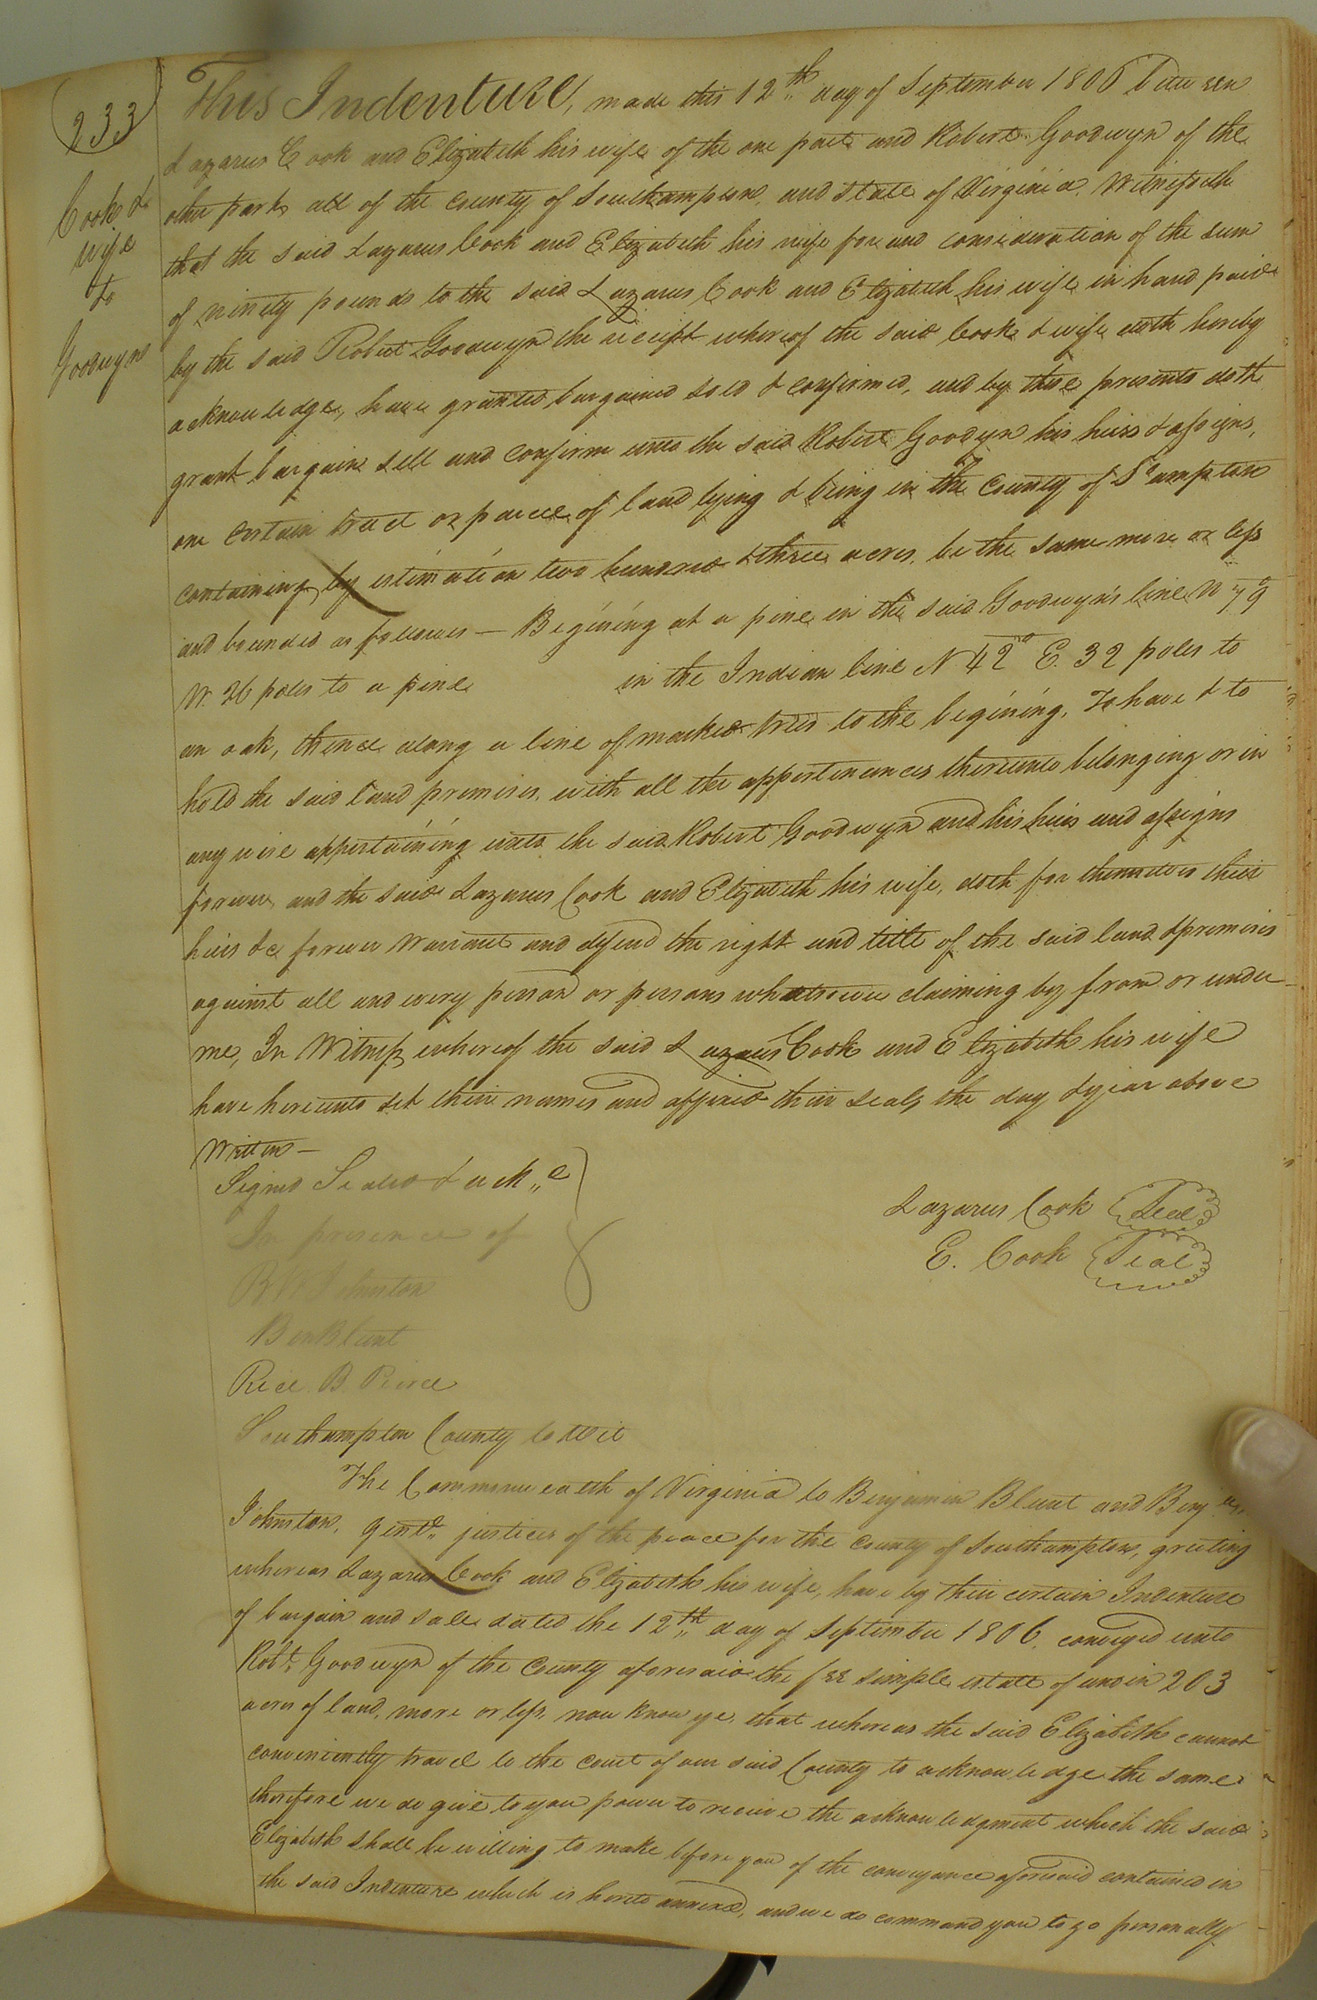 233
Cook &
wife
to
Goodwyn
This Indenture, made this 12th day of September 1806 between
Lazarus Cook and Elizabeth his wife of the one part and Robert Goodwyn of the
other part, all of the county of Southampton, and State of Virginia, Witnesseth
that the said Lazarus Cook and Elizabeth his wife for and consideration of the sum
of ninety pounds to the said Lazarus Cook and Elizabeth his wife in hand paid
by the said Robert Goodwyn the receipt whereof the said Cook & wife doth hereby
acknowledge, have granted, bargained sold & confirmed, and by these presents doth
grant bargain sell and confirm unto the said Robert Goodwyn his heirs & assigns,
one certain tract or parcel of land lying & being in the county of So ampton
containing by estimation two hundred & three acres, be the same more or less
and bounded as follows — Begining at a pine in the said Goodwyn's line N 79°
W. 26 poles to a pine in the Indian line N 42d E. 32 poles to
an oak, thence along a line of marked trees to the begining, To have & to
hold the said land premises, with all the appertinances thereunto belonging or in
any wise appertaining unto the said Robert Goodwyn and his heirs and assigns
forever, and the said Lazarus Cook and Elizabeth his wife, doth for themselves their
heirs &c forever warrant and defend the right and title of the said land & premises
against all and every person or persons whatsoever claiming by from or under
me, In Witness whereof the said Lazarus Cook and Elizabeth his wife
have hereunto set their names and affixed their seals the day & year above
Written —
Signed Sealed & ack,,d
In presence of
Lazarus Cook Seal
E. Cook Seal
Johnston
Ben Blunt
Rice B. Pierce
Southampton County to wit
The Commonwealth of Virginia to Benjamin Blunt and Benj.
Johnston, gent. justices of the peace for the county of Southampton, greeting
whereas Lazarus Cook and Elizabeth his wife, have by their certain Indenture
of bargain and sale dated the 12th day of September 1806, conveyed unto
Robt. Goodwyn of the county aforesaid the fee simple estate of and in 203
acres of land, more or less, now know ye, that whereas the said Elizabeth cannot
conveniently travel to the court of our said County to acknowledge the same
therefore we do give to you power to receive the acknowledgment which the said
Elizabeth shall be willing to make before you of the conveyance aforesaid contained in
the said Indenture which is hereto annexed, and we do command you to go personally